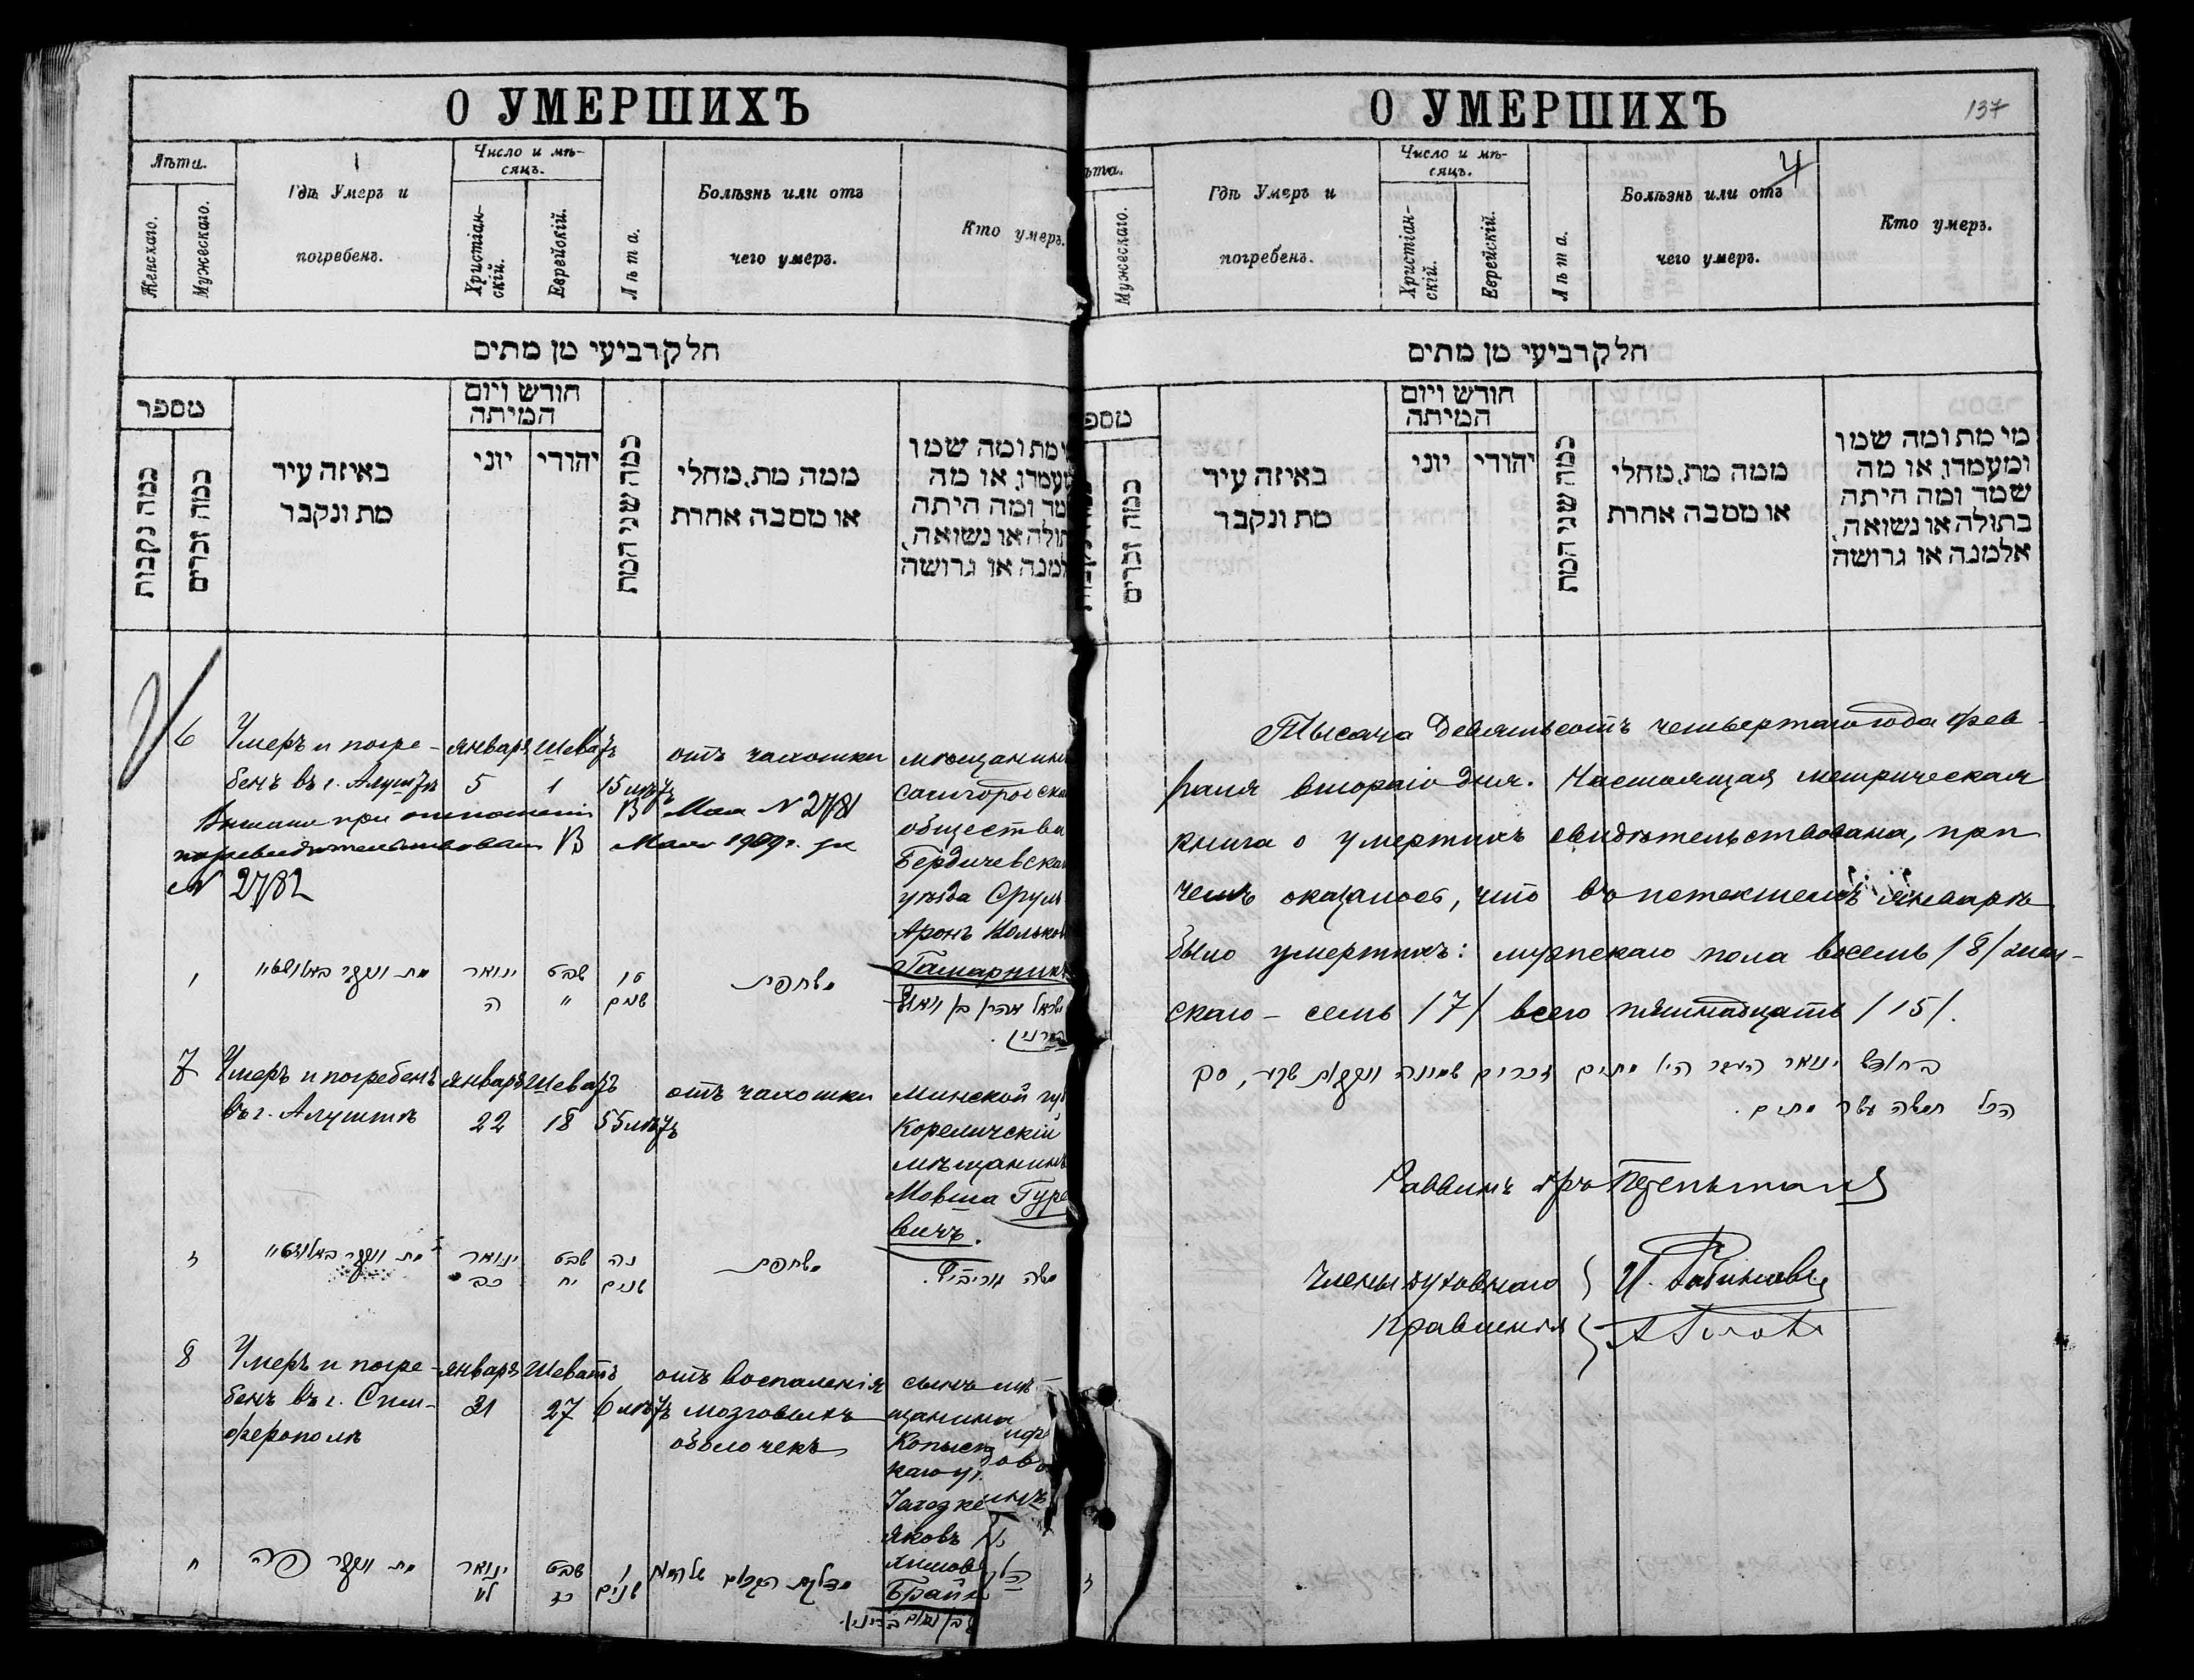 О УМЕРШИХЪ
Лѣта.
Женскаго.
Мужескаго.
Гдѣ Умеръ и
погребенъ.
Число и мѣ-
сяцъ.
Христіан-
скій.
Еврейскій.
Лѣта.
Болѣзнь или отъ
чего умеръ.
Кто умеръ.
חלק רביעי מן מתים
מספר
כמה נקבות
כמה זכרים
באיזה עיר
מת ונקבר
חודש ויום
המיתה
יוני
יהודי
כמה שני המת
ממה מת, מחלי
או מסבה אחרת
מת ומה שמו
או מה
ומה היתה
או נשואה,
או גרושה
6
Умеръ и погре-
бенъ въ г. Алуштѣ
Января
5
Шеватъ
1
15 лѣтъ
отъ чахотки
мѣщанинъ
общества
Бердичевска
уѣзда Сруль
Аронъ
Гамарникъ
В Мая N 2781
В Мая 1909 г. за
N 2782
ו
מת ונקבר באלושטי
ינואר
ה
שבט
״
טו
שנים
משחפת
ישראל אהרן בן
7
Умеръ и погребенъ
въ г. Алуштѣ
Января
22
Шеватъ
18
55 лѣтъ
отъ чахотки
Минской губ
Кореличскій
мѣщанинъ
Мовша Гуре
вичъ.
ז
מת ונקבר באלושטי
ינואר
כב
שבט
יח
נה
שנים
משחפת
משה גוריביץ.
8
Умеръ и погре-
бенъ въ г. Сим-
ферополѣ
Января
31
Шеватъ
27
6 лѣтъ
отъ воспаленія
мозговыхъ
оболочекъ
сынъ мѣ-
щанина
Яковъ
ח
מת ונקבר פה
ינואר
לא
שבט
כז
ו
שנים
О УМЕРШИХЪ
137
4
ѣта.
Мужескаго.
Гдѣ Умеръ и
погребенъ.
Число и мѣ-
сяцъ.
Христіан-
скій.
Еврейскій.
Лѣта.
Болѣзнь или отъ
чего умеръ.
Кто умеръ.
חלק רביעי מן מתים
מספ
כמה זכרים
באיזה עיר
מת ונקבר
חודש ויום
המיתה
יוני
יהודי
כמה שני המת
ממה מת, מחלי
או מסבה אחרת
מי מת ומה שמו
ומעמדו, או מה
שמה ומה היתה
בתולה או נשואה,
אלמנה או גרושה
Тысяча девятьсотъ четвертаго года фев-
раля второго дня. Настоящая метрическая
книга о умершихъ свидѣтельствована, при
чемъ оказалось, что въ истекшемъ январѣ
было умершихъ: мужскаго пола восемь /8/ жен-
скаго - семь /7/ всего пятнадцать /15/.
בחודש ינואר העבר היו מתים זכרים שמונה ונקבות שבע, סך
הכל חמשה עשר מתים.
Раввинъ
Члены духовнаго
Правленія